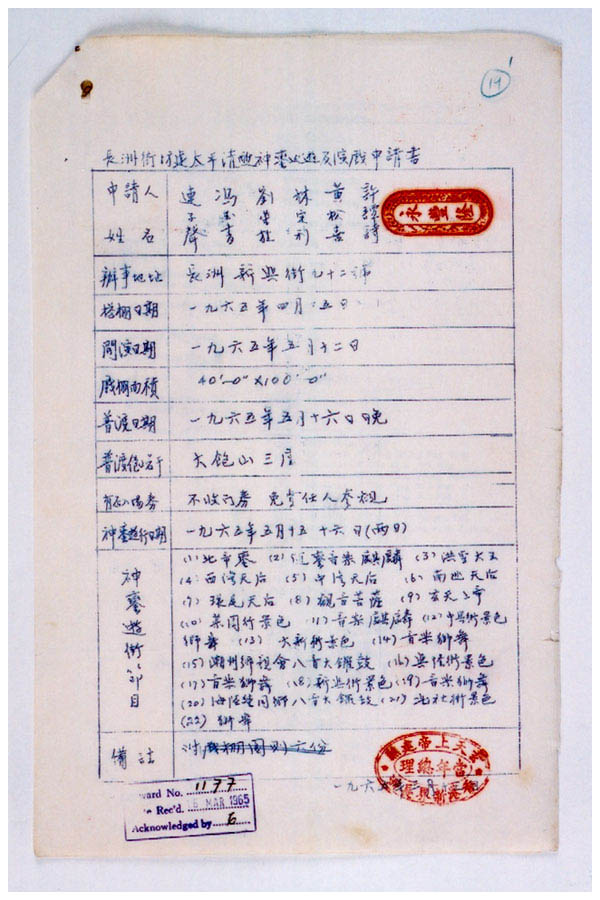 14
長洲街坊建太平清醮神鑾出遊及演戲申請書
申請人姓名 連子聲 馮玉書 劉 林定利 黃松喜 許譚詩
永豐隆
辦事地址 長洲新興街九十二號
搭棚日期 一九六五年四月 五日
開演日期 一九六五年五月十二日
戲棚面積 40'-0" X 100'-0"
普渡日期 一九六五年五月十六日晚
普渡包若干 大飽山三座
有否入場券 不收門券 免費任人參觀
神鑾遊行日期 一九六五年五月十五 十六日(兩日)
神鑾遊街節目
(1) 北帝鑾 (2) 鑾音樂麒麟 (3) 洪聖大王
(4) 西湾天后 (5) 中湾天后 (6) 南氹天后
(7) 環尾天后 (8) 觀音菩薩 (9) 玄天上帝
(10) 菜園街景色 (11) 音樂麒麟 (12) 中興街景色
獅舞 (13) 大新街景色 (14) 音樂獅舞
(15) 潮州鄉親會八音大鑼鼓 (16) 興隆街景色
(17) 音樂獅舞 (18) 新興街景色 (19) 音樂獅舞
(20) 海陸總同鄉八音大鑼鼓 (21) 北社街景色
(22) 獅舞
備註 附戲棚圖則六份
玄天上帝建醮
當年總理
一九六五年 月
ward No. 1177
Rec'd. MAR 1965
Acknowledged by 6